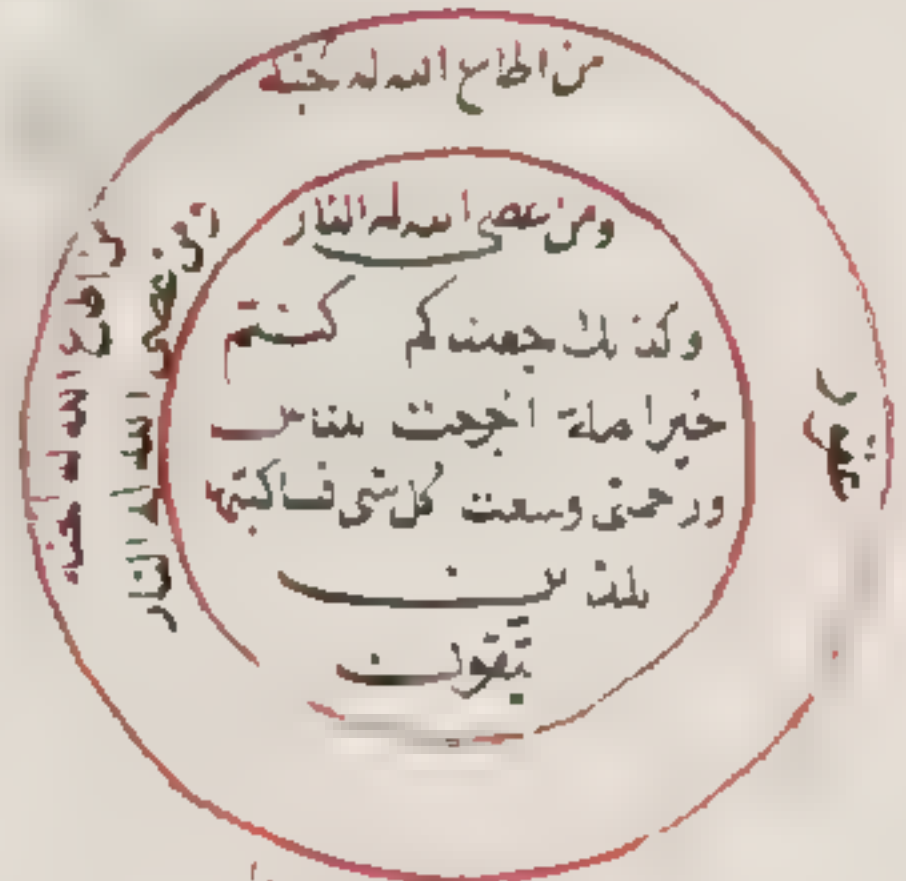 من اطاع الله له جنه
ومن عصى الله له النار
وكذلك جعلنكم كنتم
خير امة اخرجت للناس
ورحمتى وسعت كل شى فساكتبها
للذين
يتقون
من اطاع الله له الجنه
ومن عصى الله له النار